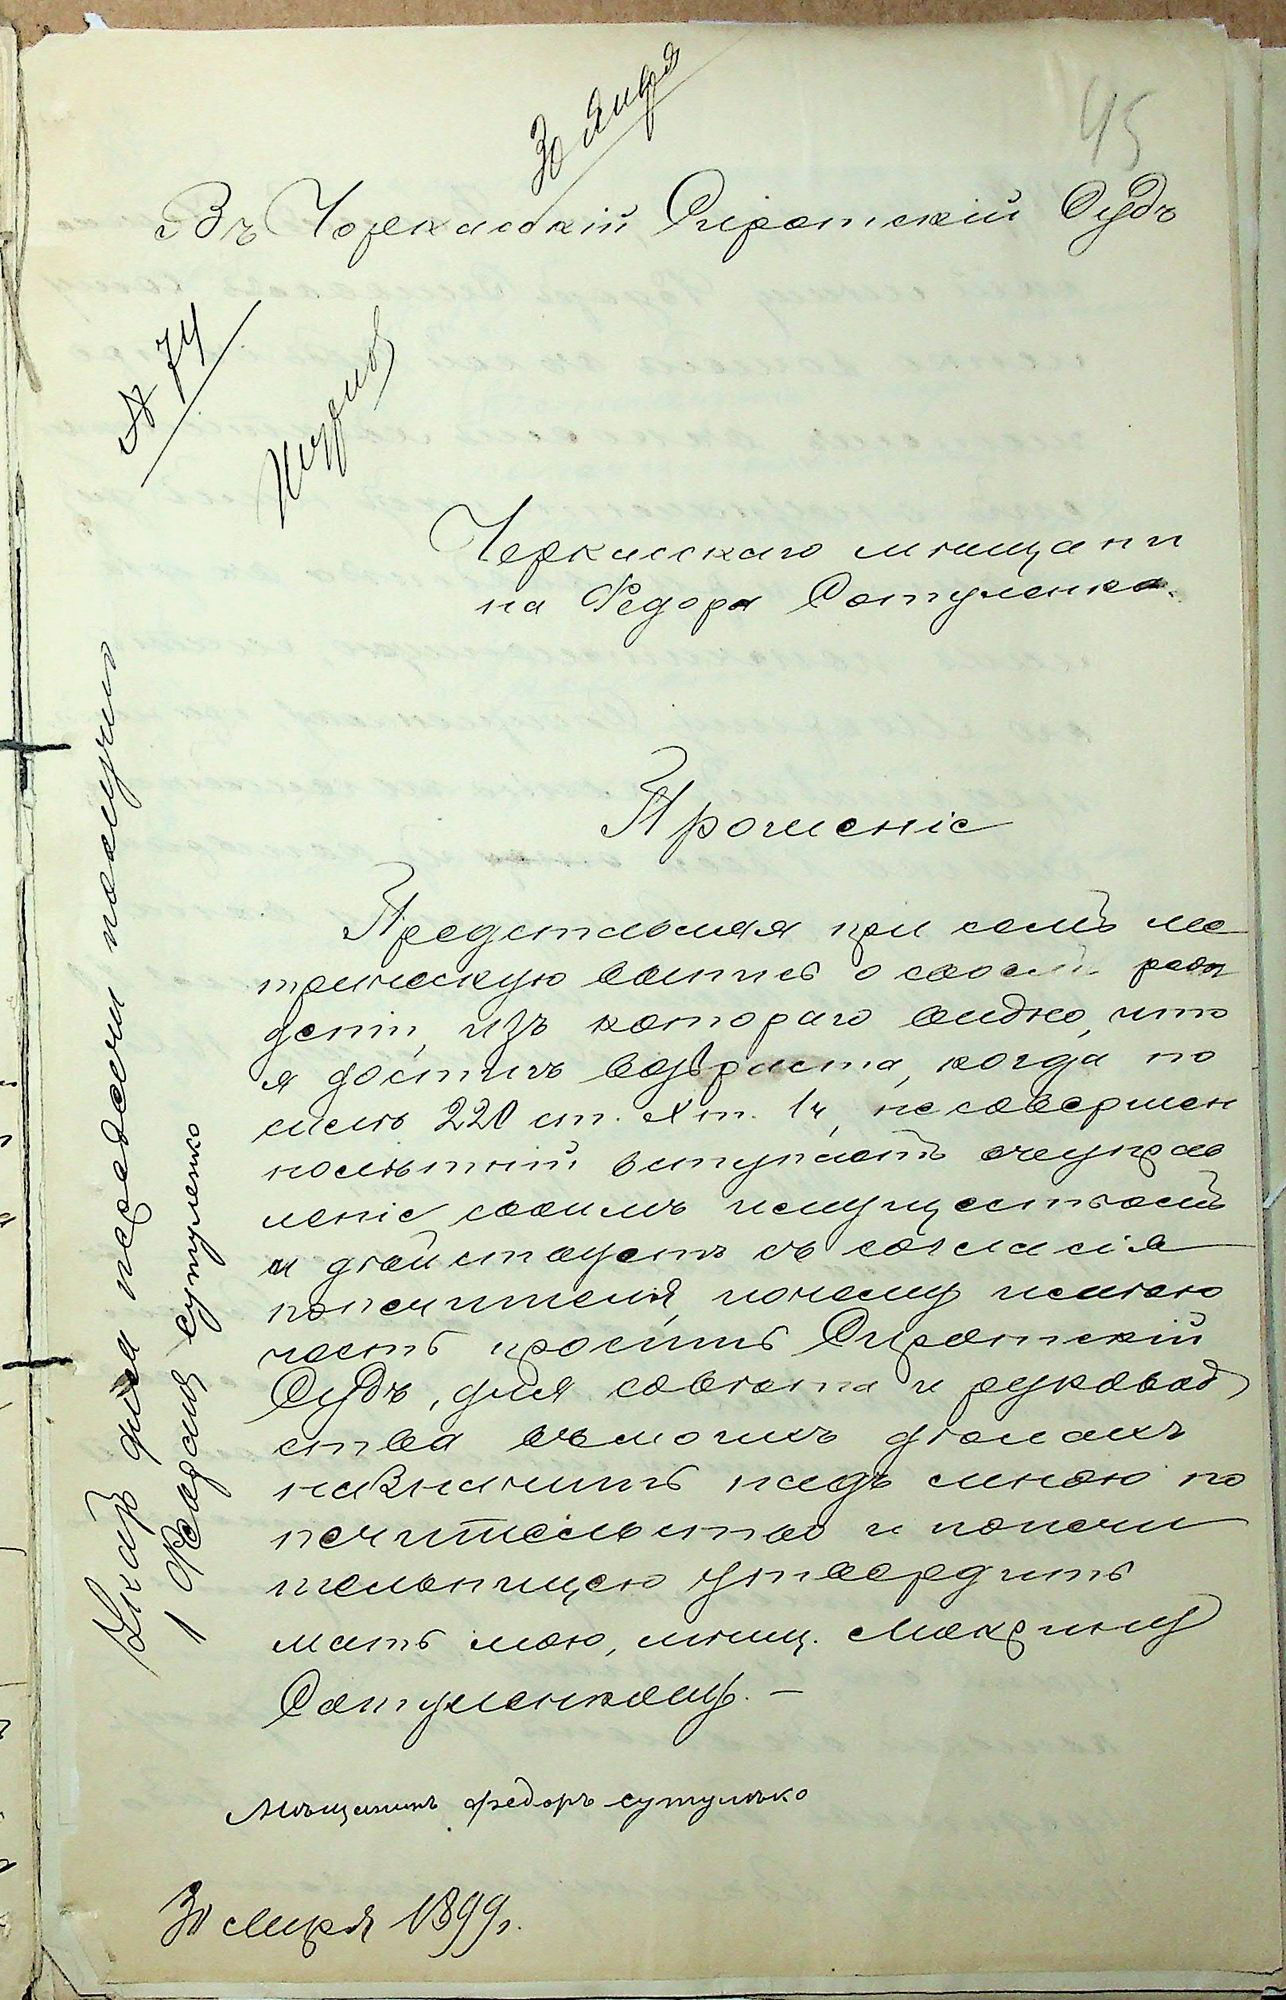 45
30 Янвря
Въ Черкасскій Сиротскій Судъ
№ 74
Черкасскаго мѣщани
на Федора Сотуленка.
Прошеніе
Представляя при семъ ме
трическую выпись о своемъ рож
деніи, изъ котораго видно, что
я достигъ возраста, когда по
силѣ 220 ст. X т. 1 ч, несовершен
нолѣтній вступаетъ въ управ
леніе своимъ имуществомъ
и дѣйствуетъ съ согласія
попечителя, почему имѣю
честь просить Сиротскій
Судъ, для совѣта и руковод
ства въ моихъ дѣлахъ
назначить надъ мною по
печительство и попечи
тельницею утвердить
мать мою, мѣщ. Макрину
Сотуленкову. –
Мѣщанинъ Федоръ Сутулѣко
30 Янвря 1899 г.
Указ для передачи получил
Федоръ Сутуленко